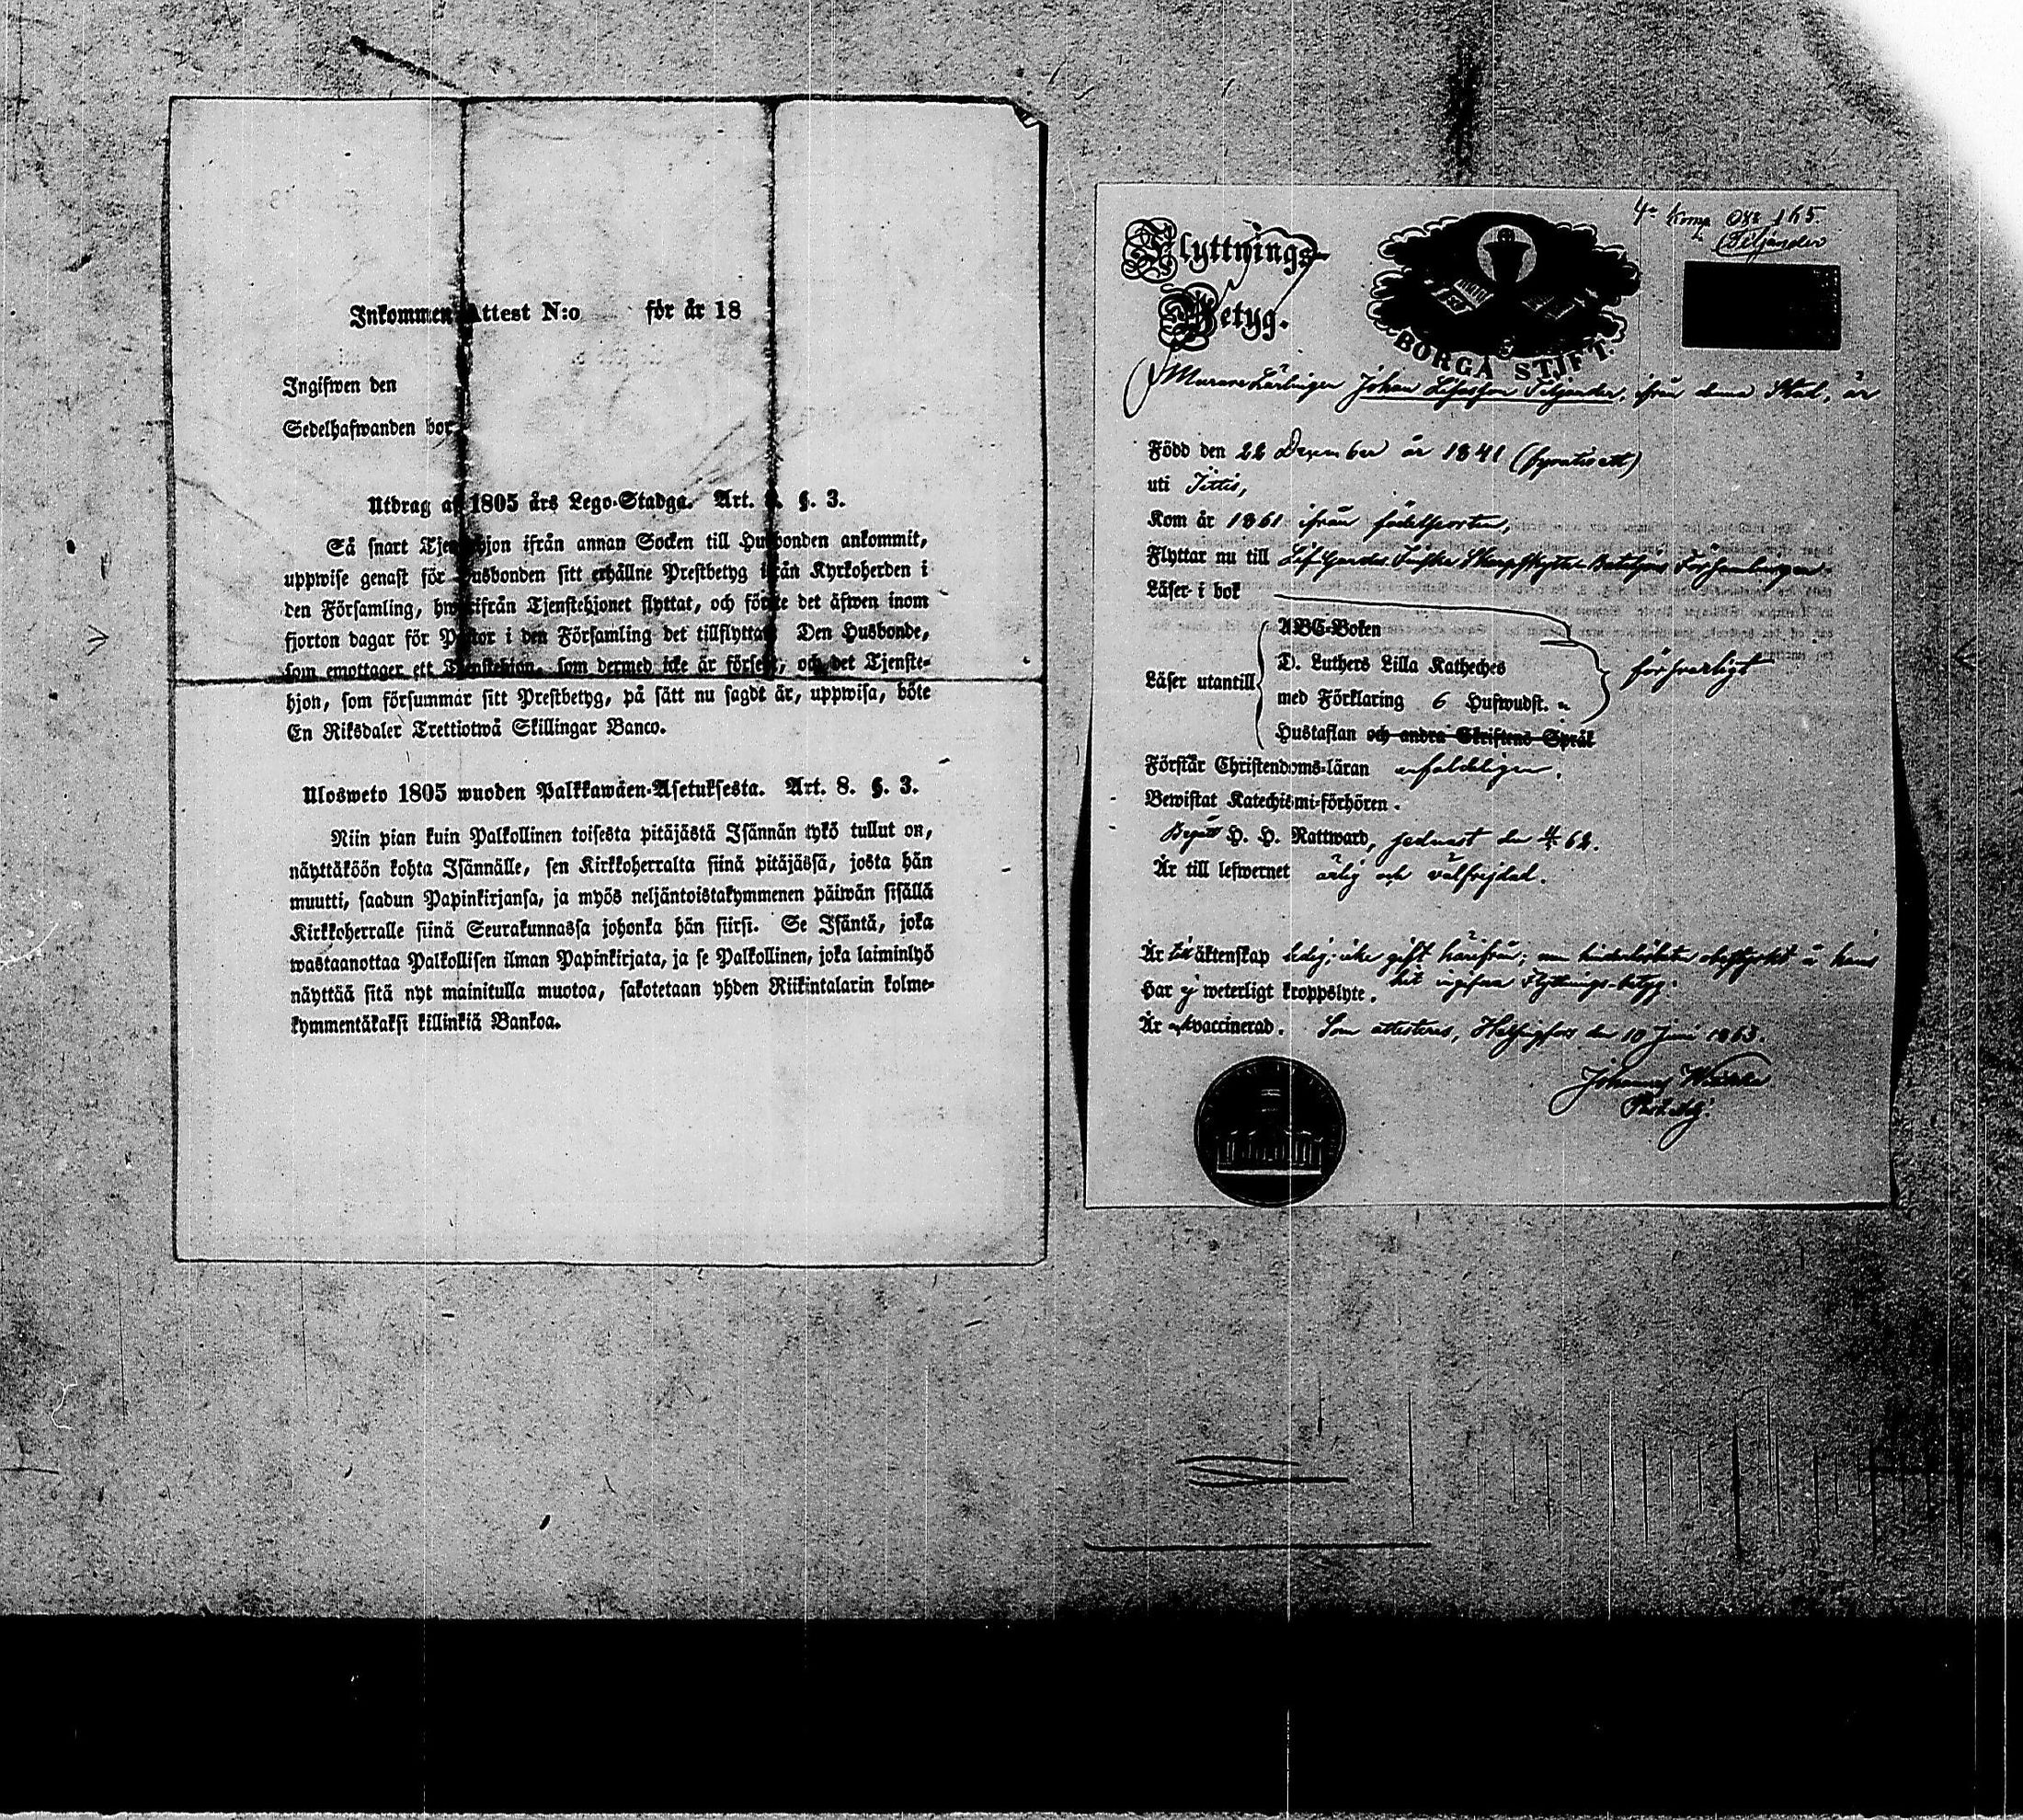 Inkommen Attest N:o för år 18
Ingifwen den
Sedelhafwanden bor
Utdrag af 1805 års Lego-Stadga. Art. §. 3.
Så snart Tjenstehjon ifrån annan Socken till Husbonden ankommit,
uppwise genast för Husbonden sitt erhållne Prestbetyg ifrån Kyrkoherden i
den Församling, hwarifrån Tjenstehjonet flyttat, och förete det äfwen inom
fjorton dagar för Pastor i den Församling det tillflyttat. Den Husbonde,
som emottager ett Tjenstehjon, som dermed icke är försedt, och det Tjenste-
hjon, som försummar sitt Prestbetyg, på sätt nu sagdt är, uppwisa, böte
En Riksdaler Trettiotwå Skillingar Banco.
Ulosweto 1805 wuoden Palkkawäen-Asetuksesta. Art. 8. §. 3.
Niin pian kuin Palkollinen toisesta pitäjästä Isännän tykö tullut on,
näyttäköön kohta Isännälle, sen Kirkkoherralta siinä pitäjässä, josta hän
muutti, saadun Papinkirjansa, ja myös neljäntoistakymmenen päiwän sisällä
Kirkkoherralle siinä Seurakunnassa johonka hän siirsi. Se Isäntä, joka
wastaanottaa Palkollisen ilman Papinkirjata, ja se Palkollinen, joka laiminlyö
näyttää sitä nyt mainitulla muotoa, sakotetaan yhden Riikintalarin kolme-
kymmentäkaksi killinkiä Bankoa.
4e Komp 165
Siljander
Flyttnings-
Betyg.
BORGÅ STIFT.
Murare Lärlingen Johan Siljander, ifrån denna Stad, är
Född den 22 December år 1841 (fyratioett)
uti Jittis,
Kom år 1861 ifrån födelseorten,
Flyttar nu till Lif-Gardes Finska Skarpskytte-Bataljons Församlingen.
Läser i bok
ABC-Boken
D. Luthers Lilla Katheches
Läser utantill
med Förklaring 6 Hufwudst.
försvarligt
Hustaflan och andra Skriftens Språk
Förstår Christendoms-läran enfaldeligen.
Bewistat Katechismi-förhören.
Begått H. H. Nattward, sednast den 62.
Är till lefwernet ärlig och välfrejdad.
Är till äktenskap ledig; icke gift härifrån; om hinderlösheten är hans
hit ingifna Flyttnings-betyg.
Har ej weterligt kroppslyte.
Är vaccinerad. Som attesteras, Helsingfors den 10 Juni 1863.
Johannes